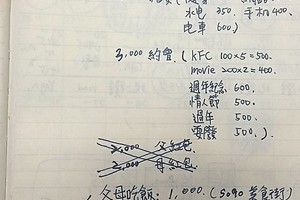 水电 350. 手机 400.
电車 600.)
3,000 約會 ( KFC 100×5 = 500.
movie 200×2 = 400.
週年紀念 600.
情人節 500.
過年 500.
要廢 500.)
2,000 父紅包
2,000 母紅包
父母吃飯: 1,000. (5090 美食街)